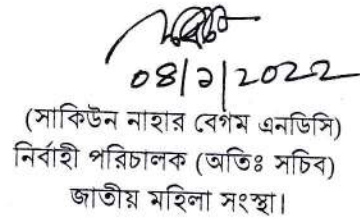 08/১/2022
(সাকিউন নাহার বেগম এনডিসি)
নির্বাহী পরিচালক (অতিঃ সচিব)
জাতীয় মহিলা সংস্থা।